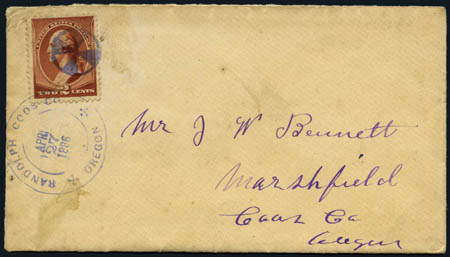 UNITED STATES POSTAGE
TWO 2 CENTS
RANDOLPH COOS CO. OREGON
APR
27
1886
Mr J W Bennett
Marshfield
Coos Co
Oregon